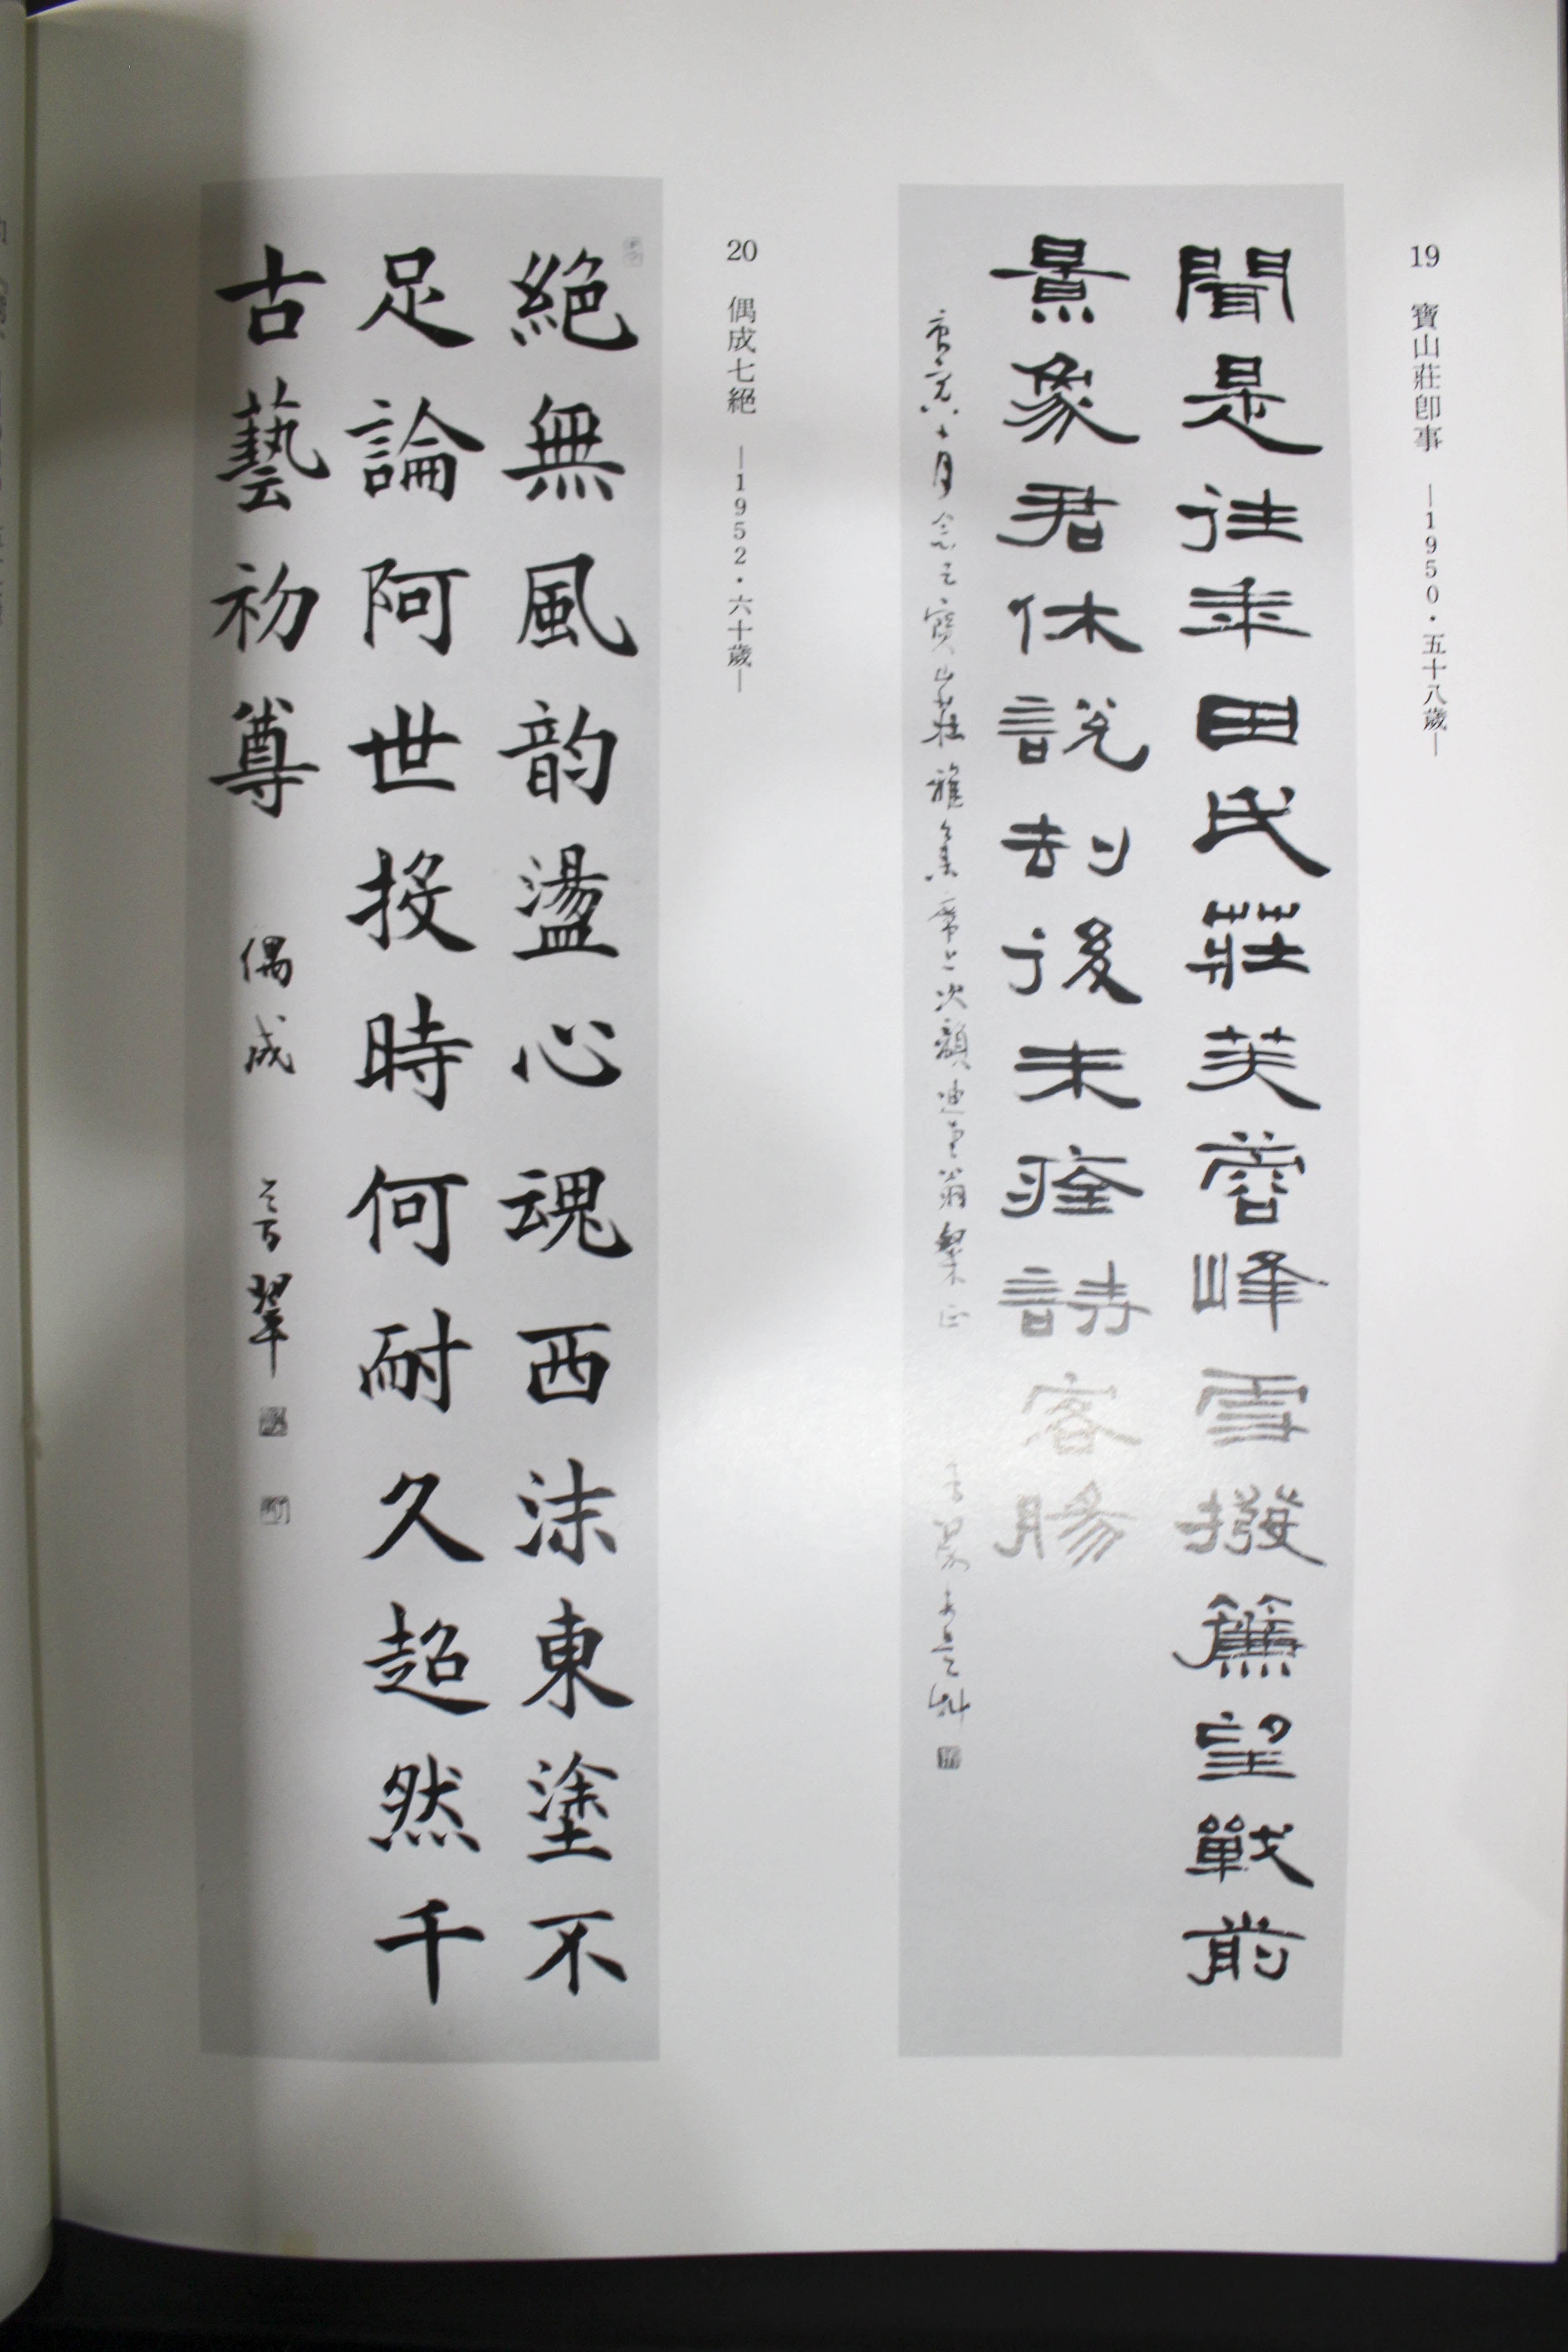 19 寶山莊卽事 —1950・五十八歲—
聞是往年田氏莊芙蓉峰雪撥簾望戰前
景象君休說劫後未痊詩客腸
六十月念三寶山莊雅集席上次韻
20 偶成七絕 —1952・六十歲—
絕無風韵盪心魂西沫東塗不
足論阿世投時何耐久超然千
古藝初尊 偶成